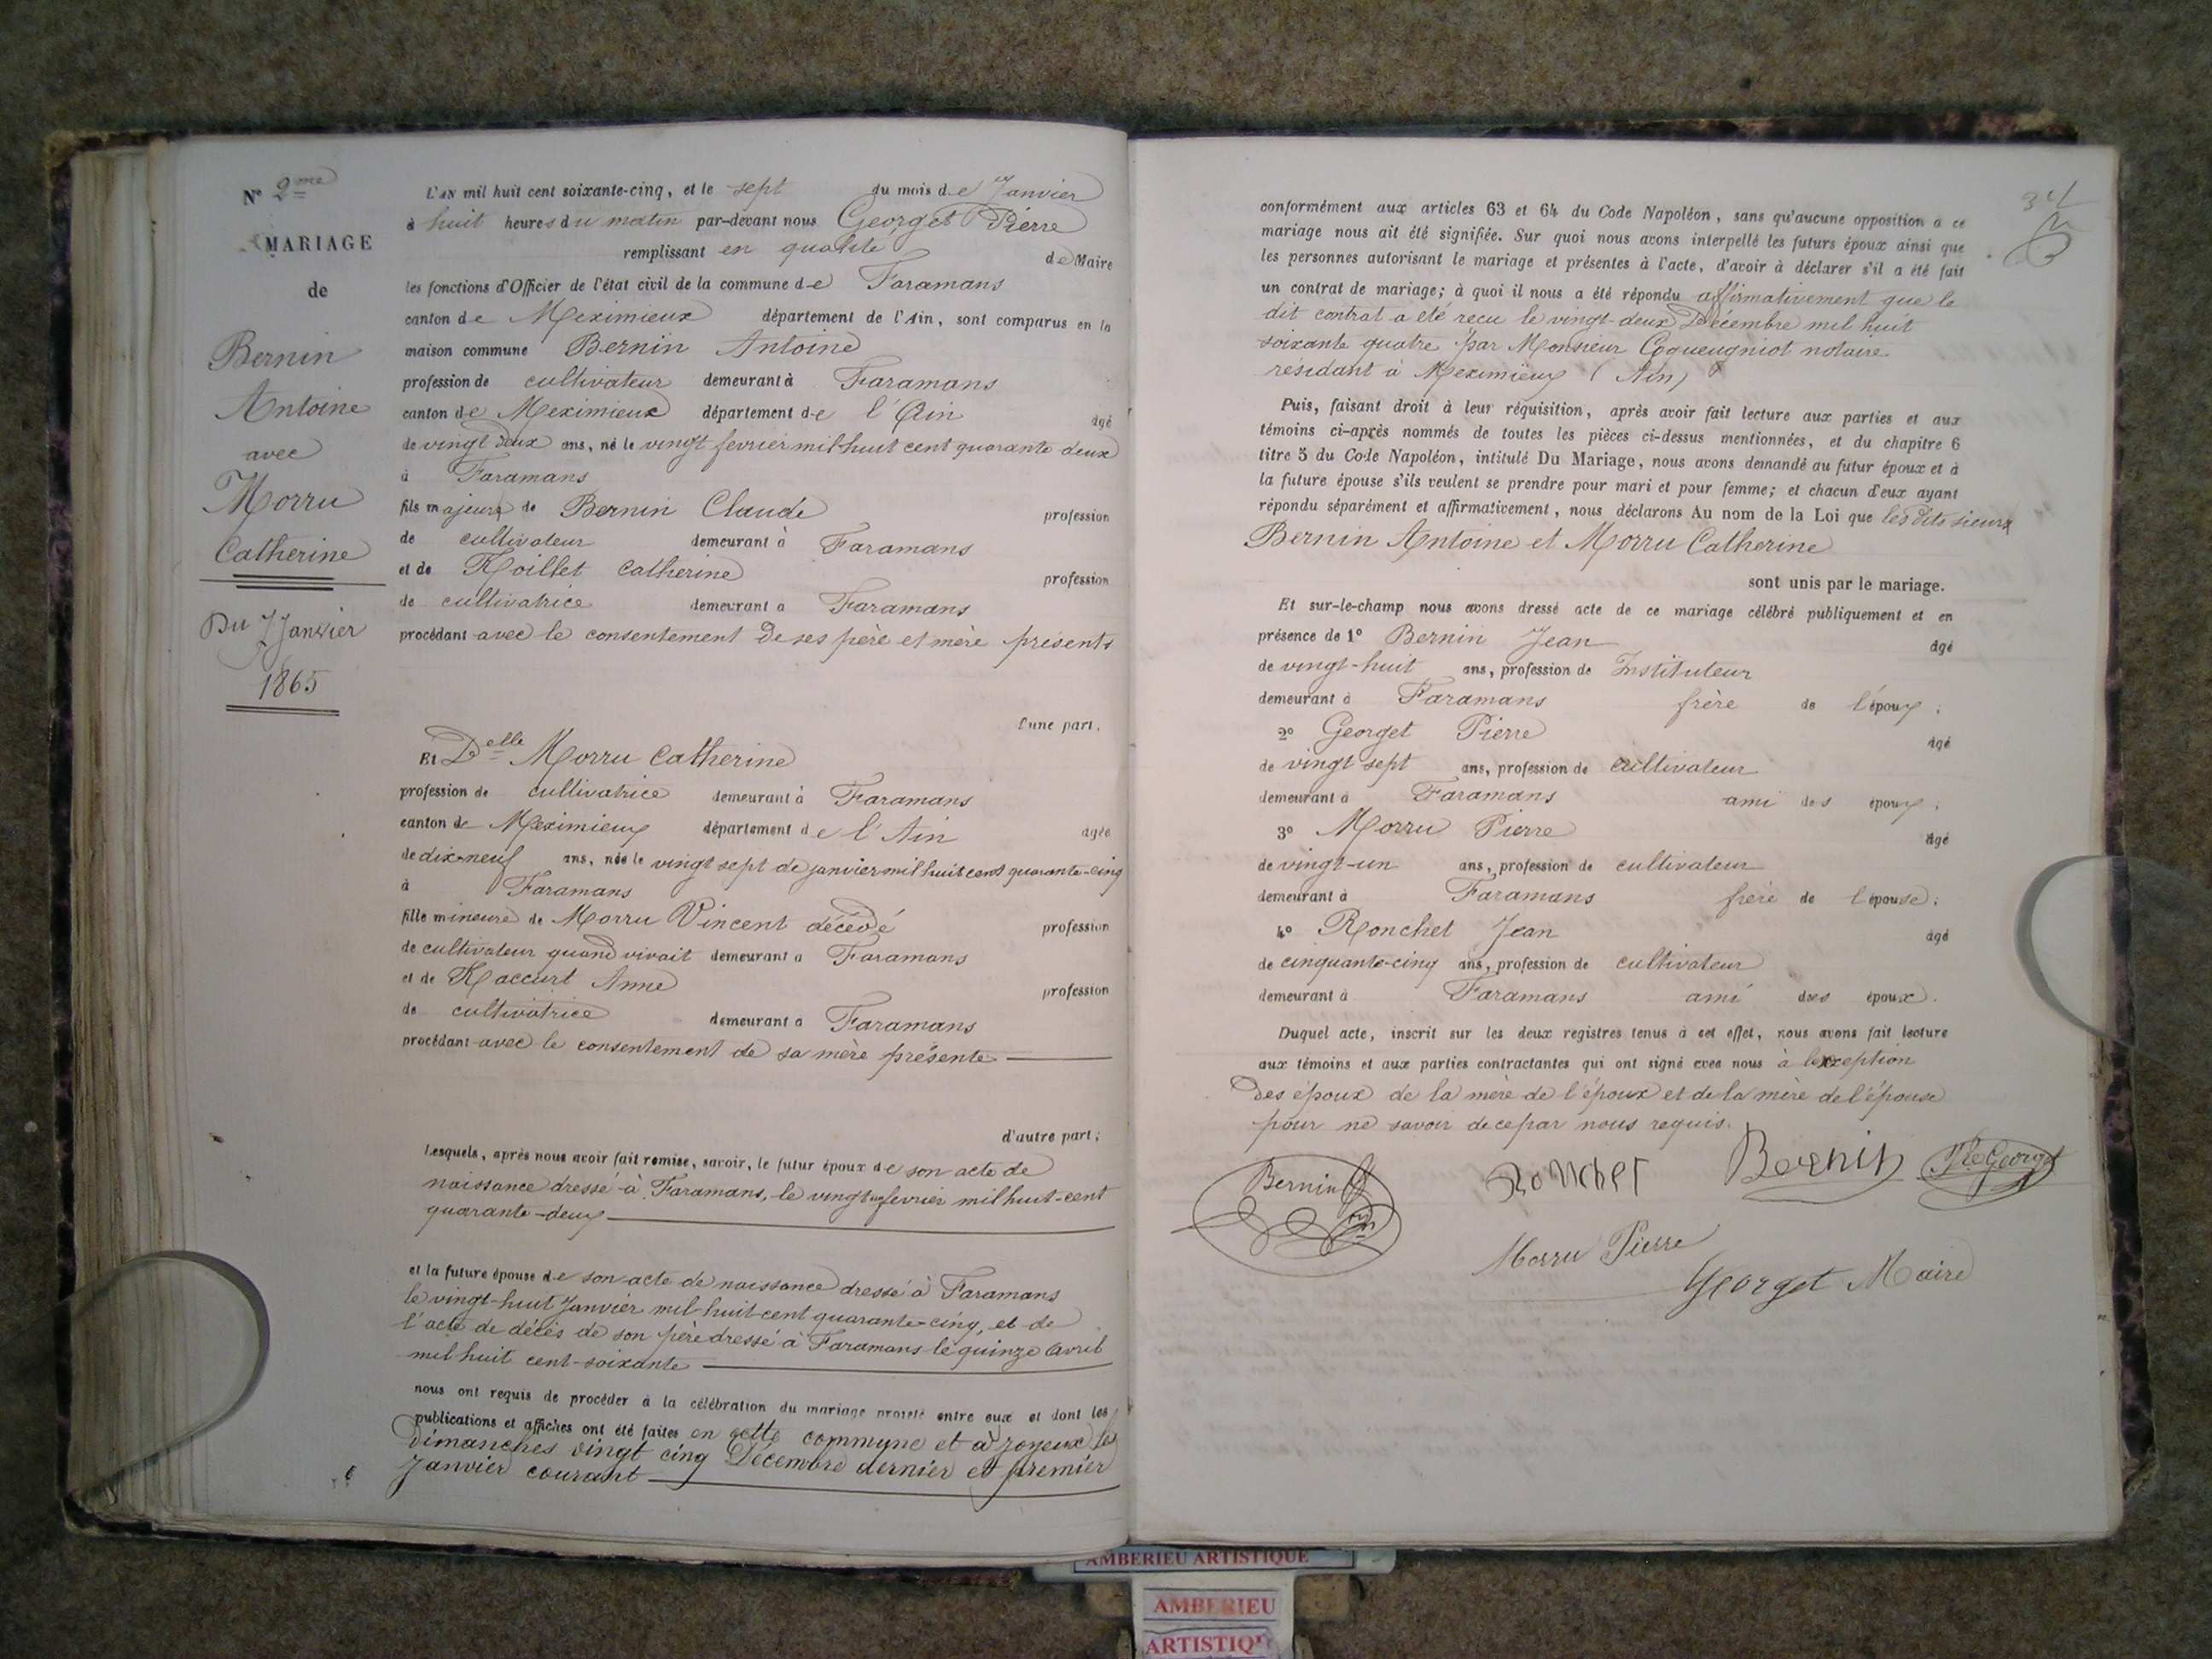 N° 2me
MARIAGE
de
Bernin
Antoine
avec
Morru
Catherine
Du 7 Janvier
1865
L'AN mil huit cent soixante-cinq, et le sept du mois de Janvier
à huit heures du matin par-devant nous Georget Pierre
remplissant en qualité de Maire
les fonctions d'Officier de l'état civil de la commune de Faramans
canton de Meximieux département de l'Ain, sont comparus en la
maison commune Bernin Antoine
profession de cultivateur demeurant à Faramans
canton de Meximieux département de l'Ain âgé
de vingt deux ans, né le vingt fevrier mil huit cent quarante deux
à Faramans
fils majeur de Bernin Claude profession
de cultivateur demeurant à Faramans
et de Roillet Catherine profession
de cultivatrice demeurant à Faramans
procédant avec le consentement de ses père et mère présents
l'une part.
Et Delle Morru Catherine
profession de cultivatrice demeurant à Faramans
canton de Meximieux département de l'Ain agée
de dix-neuf ans, née le vingt sept de janvier mil huit cent quarante-cinq
à Faramans
fille mineure de Morru Vincent décédé profession
de cultivateur quand vivait demeurant à Faramans
et de Raccurt Anne profession
de cultivatrice demeurant à Faramans
procédant avec le consentement de sa mère présente
d'autre part;
Lesquels, après nous avoir fait remise, savoir, le futur époux de son acte de
naissance dressé à Faramans, le vingt fevrier mil huit-cent
quarante-deux
et la future épouse de son acte de naissance dressé à Faramans
le vingt-huit Janvier mil huit cent quarante-cinq, et de
l'acte de décès de son père dressé à Faramans le quinze Avril
mil huit cent-soixante
nous ont requis de procéder à la célébration du mariage projeté entre eux et dont les
publications et affiches ont été faites en cette commune et à Joyeux les
dimanches vingt cinq Décembre dernier et premier
Janvier courant
34
conformément aux articles 63 et 64 du Code Napoléon, sans qu'aucune opposition à ce
mariage nous ait été signifiée. Sur quoi nous avons interpellé les futurs époux ainsi que
les personnes autorisant le mariage et présentes à l'acte, d'avoir à déclarer s'il a été fait
un contrat de mariage; à quoi il nous a été répondu affirmativement que le
dit contrat a été recu le vingt-deux Décembre mil huit
soixante quatre par Monsieur Coqueugniot notaire
résidant à Meximieux (Ain)
Puis, faisant droit à leur réquisition, après avoir fait lecture aux parties et aux
témoins ci-après nommés de toutes les pièces ci-dessus mentionnées, et du chapitre 6
titre 5 du Code Napoléon, intitulé Du Mariage, nous avons demandé au futur époux et à
la future épouse s'ils veulent se prendre pour mari et pour femme; et chacun d'eux ayant
répondu séparément et affirmativement, nous déclarons Au nom de la Loi que les dits sieurs
Bernin Antoine et Morru Catherine
sont unis par le mariage.
Et sur-le-champ nous avons dressé acte de ce mariage célébré publiquement et en
présence de 1° Bernin Jean âgé
de vingt-huit ans, profession de Instituteur
demeurant à Faramans frère de l'époux;
2° Georget Pierre âgé
de vingt sept ans, profession de cultivateur
demeurant à Faramans ami des époux;
3° Morru Pierre âgé
de vingt-un ans, profession de cultivateur
demeurant à Faramans frère de l'épouse;
4° Ronchet Jean âgé
de cinquante-cinq ans, profession de cultivateur
demeurant à Faramans ami des époux.
Duquel acte, inscrit sur les deux registres tenus à cet effet, nous avons fait lecture
aux témoins et aux parties contractantes qui ont signé avec nous à l'exception
des époux de la mère de l'époux et de la mère de l'épouse
pour ne savoir de ce par nous requis.
Bernin Ronchet Bernin Pre Georget
Morru Pierre
Georget Maire
AMBERIEU ARTISTIQUE
AMBERIEU
ARTISTIQU